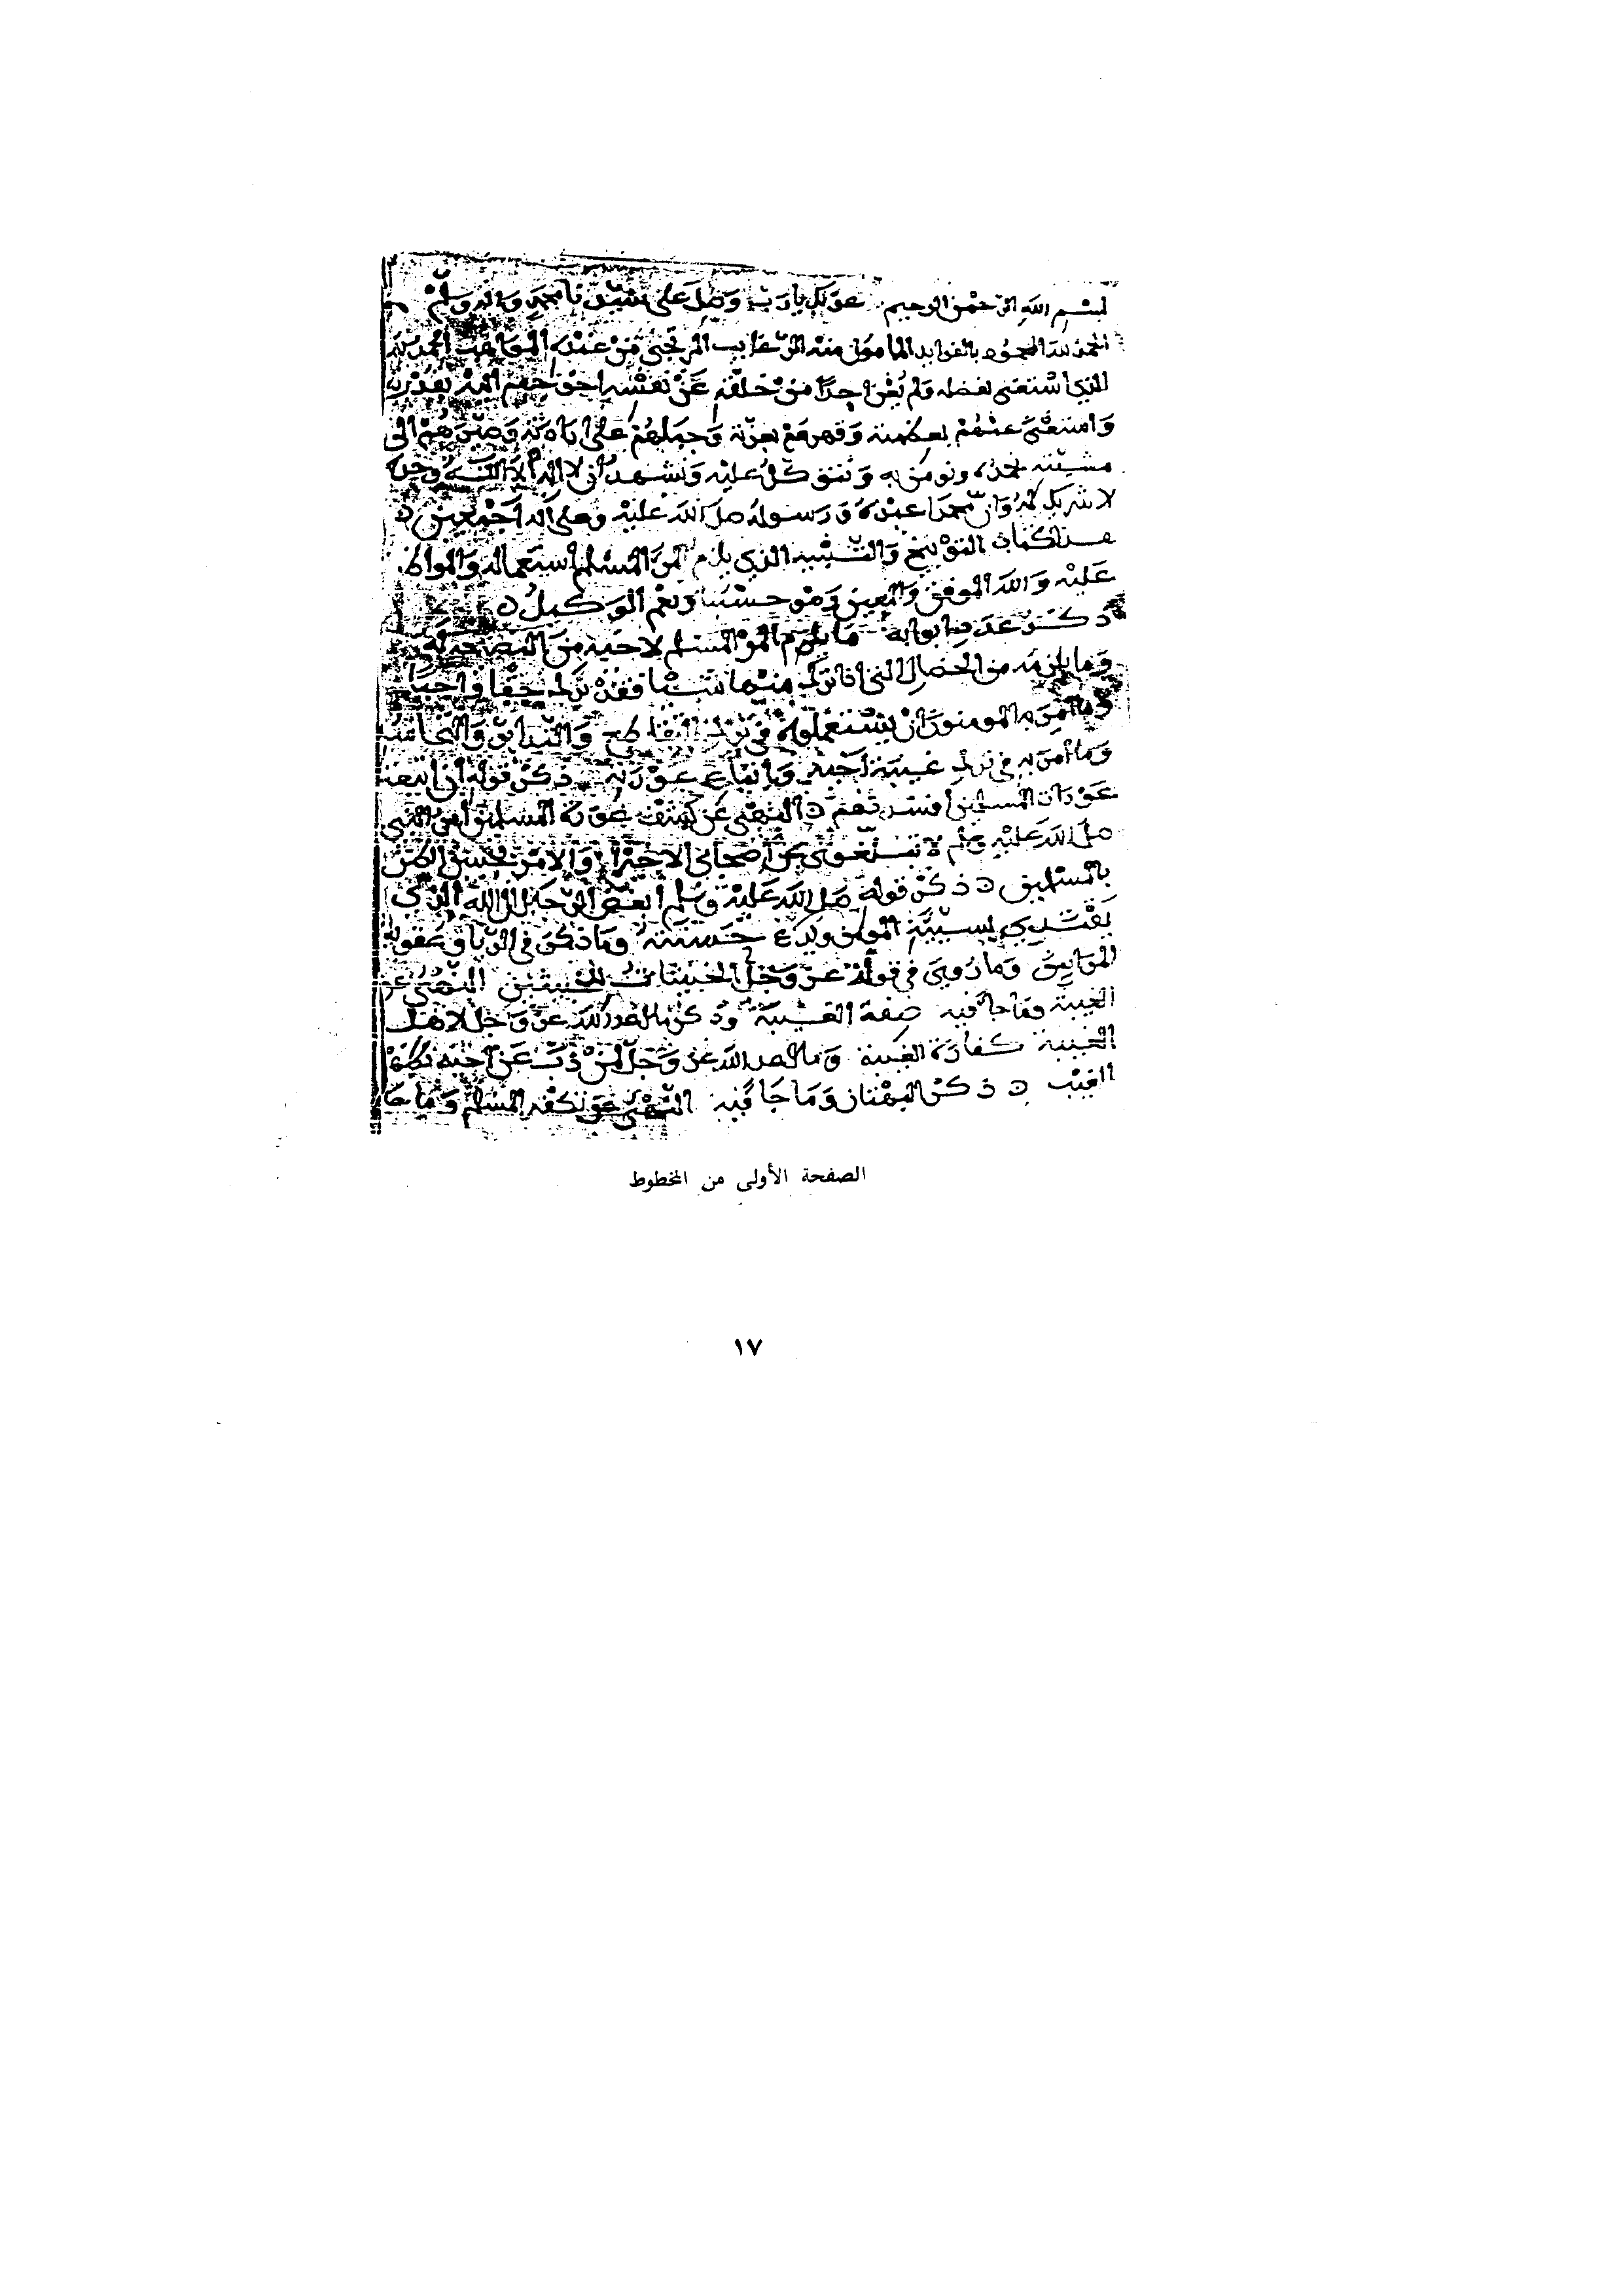 بسم الله الرحمن الرحيم عونك يا رب وصل على سيدنا محمد واله وسلم
الحمد لله بالفوايد المامول منه الرغايب المرتجى من عنده المواهب الحمد لله
الذي استغنى بفضله ولم يغن احدا من خلقه عن نفسه اليه بقدرته
وامتنع عنهم بعظمته وقهرهم بعزته وجبلهم على وصيرهم الى
مشيته نحمده ونومن به ونتوكل عليه ونشهد ان لا اله الا الله وحده
لا شريك له وان محمدا عبده ورسوله صلى الله عليه وعلى اله اجمعين
هذا كتاب التوبيخ والتنبيه الذي يلزم المرء المسلم استعماله والمواظبة
عليه والله الموفق والمعين وهو حسبنا ونعم الوكيل
ذكر عدد ابوابه ما يلزم المرء المسلم لاخيه من النصيحة له
وما يلزمه من الخصال التي اذا ترك منها شيا فقد ترك حقا واجبا
وما امر به المومنون ان يستعملوه في ترك التقاطع والتدابر والتحاسد
وما امر به في ترك غيبة اخيه واتباع عورته ذكر قوله ان اتبعت
عورات المسلمين افسدتهم النهي عن كشف عورة المسلمين امر النبي
صلى الله عليه وسلم لا تبلغوني عن اصحابي الا خيرا والامر بحسن الظن
بالمسلمين ذكر قوله صلى الله عليه وسلم ابغض الرجال الى الله الذي
يقتدي بسيئة المومن ويدع حسنته وما ذكر في الربا وعقوبة
المرابين وما روي في قوله عز وجل الخبيثات للخبيثين النهي عن
الغيبة وما جا فيه صفة الغيبة وذكر ما اعد الله عز وجل لاهل
الغيبة كفارة الغيبة وما اعد الله عز وجل لمن ذب عن اخيه بظهر
الغيب ذكر البهتان وما جا فيه النهي عن تكفير المسلم وما جا
الصفحة الأولى من المخطوط
١٧